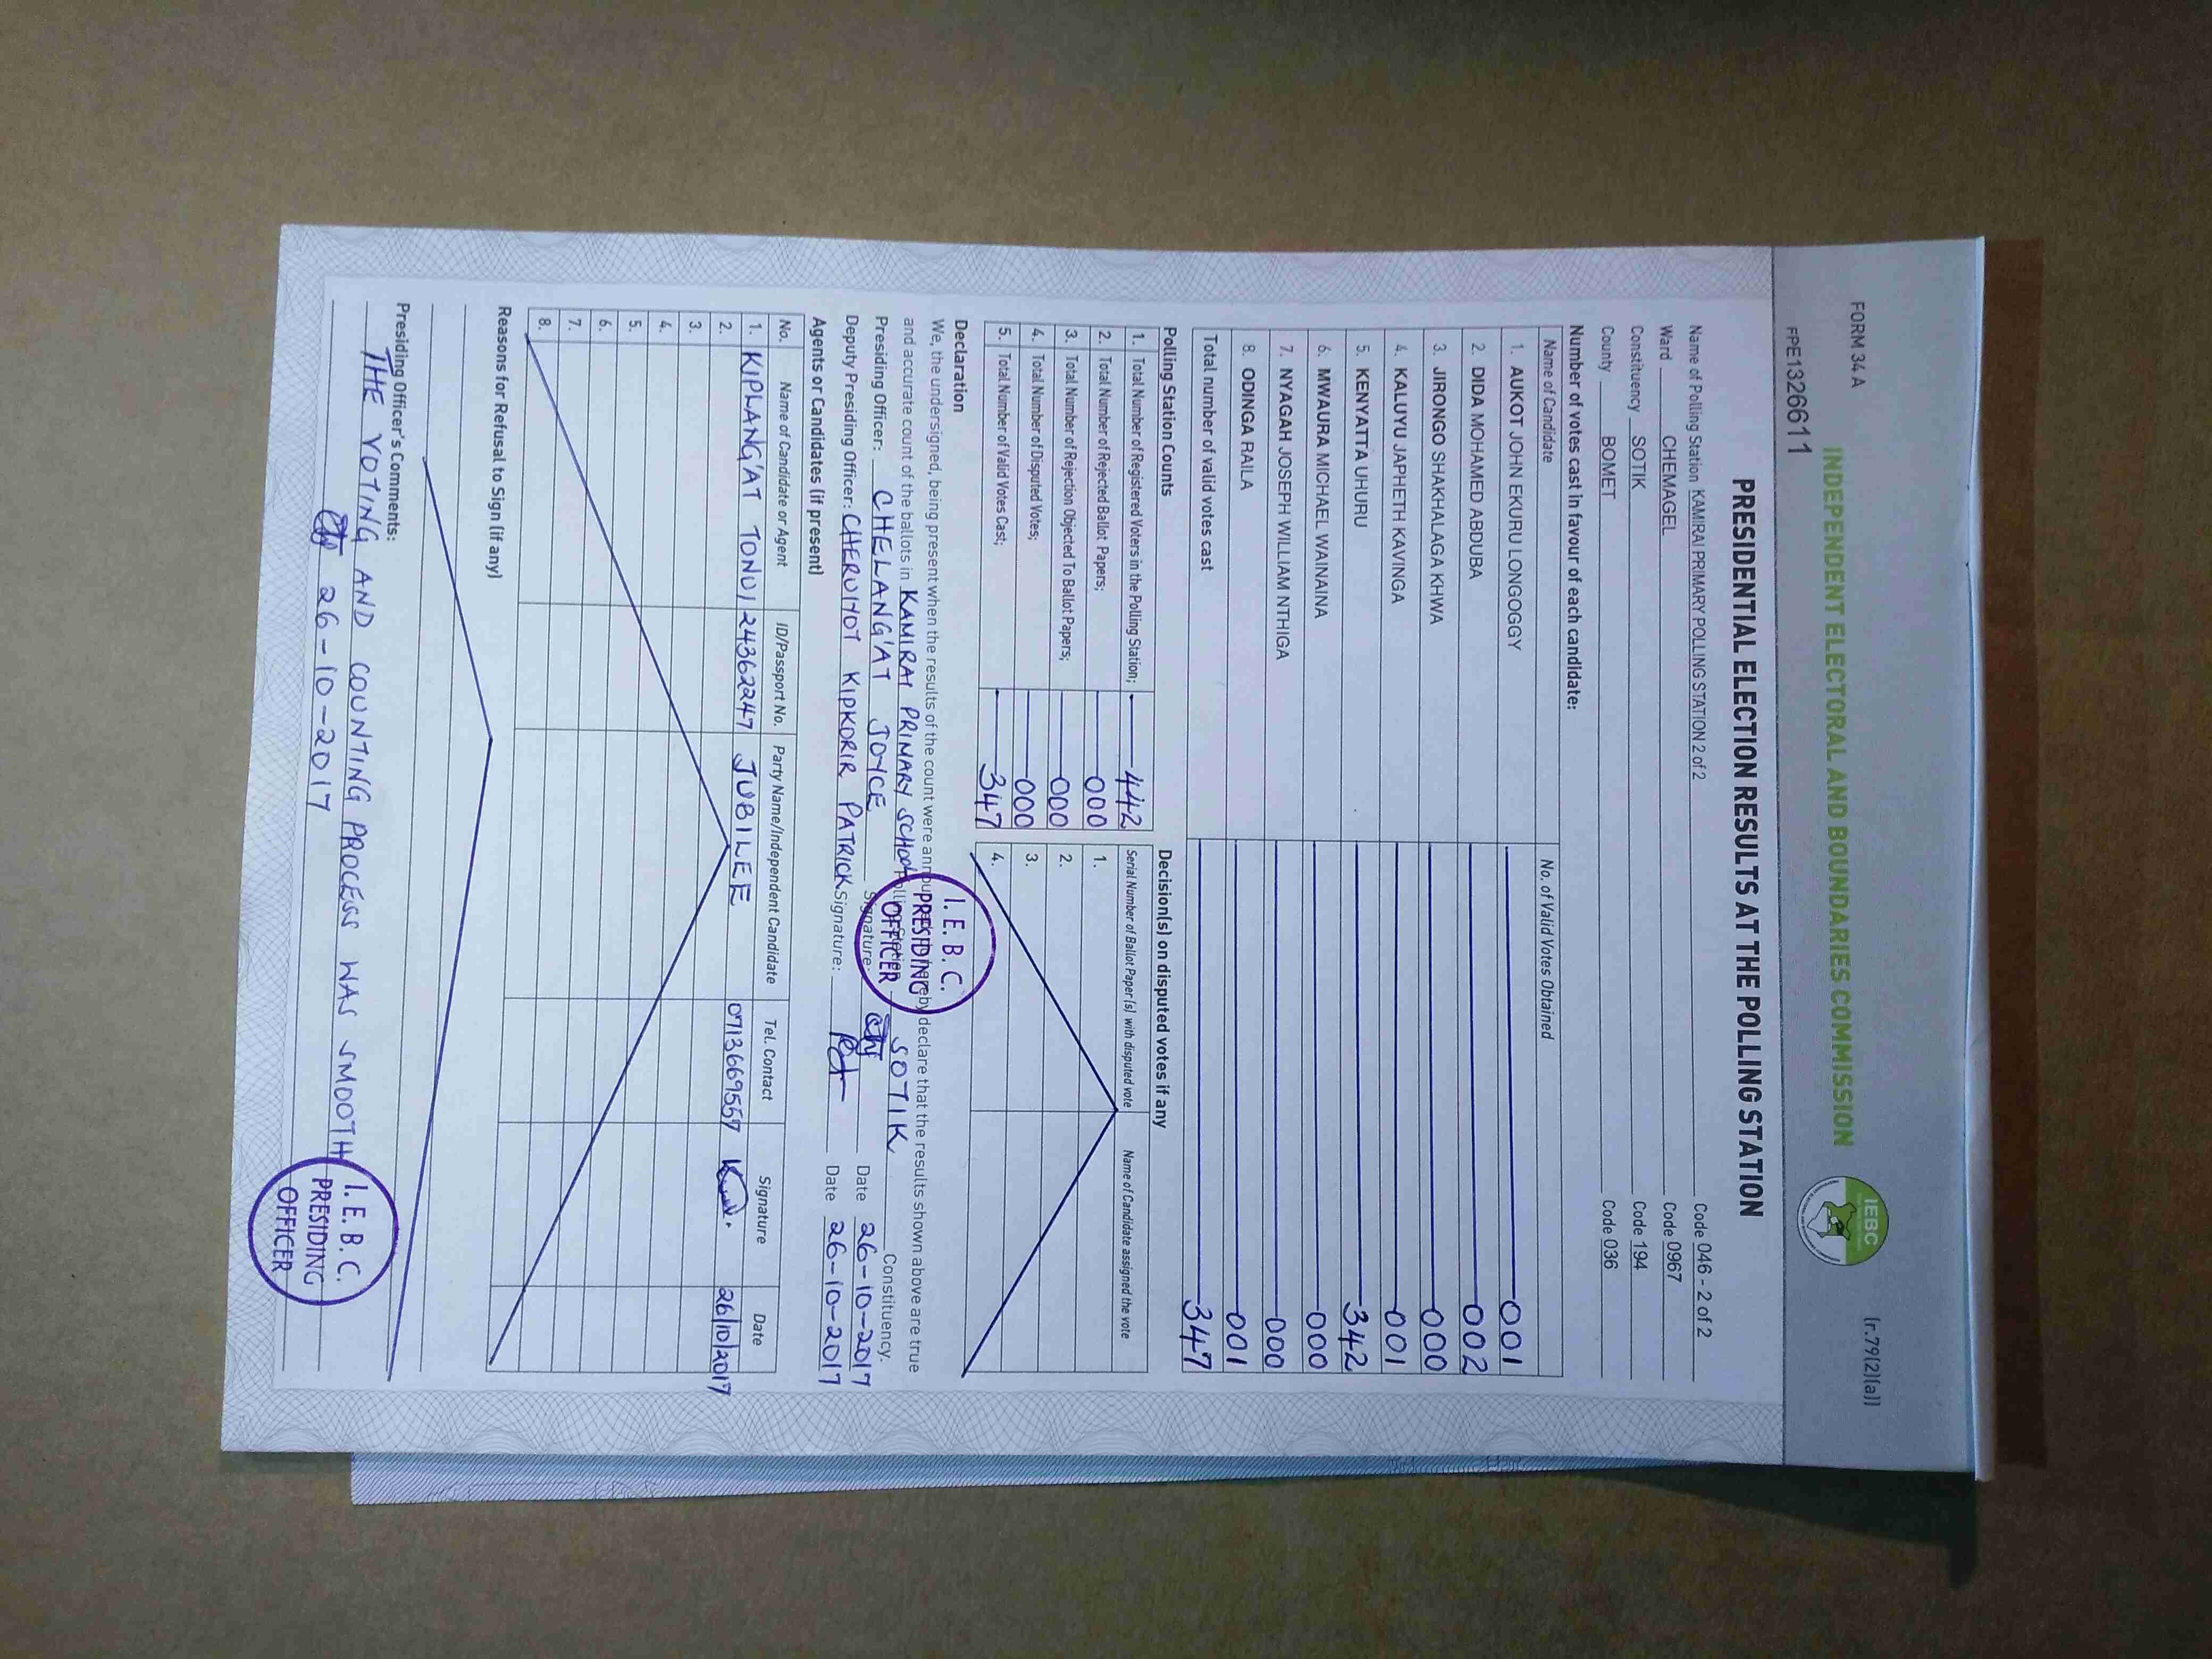 FORM 34 A
(r.79(2)(a))
INDEPENDENT ELECTORAL AND BOUNDARIES COMMISSION
IEBC
FPE1326611
PRESIDENTIAL ELECTION RESULTS AT THE POLLING STATION
Name of Polling Station KAMIRAI PRIMARY POLLING STATION 2 of 2 Code 046 - 2 of 2
Ward CHEMAGEL Code 0967
Constituency SOTIK Code 194
County BOMET Code 036
Number of votes cast in favour of each candidate:
Name of Candidate No. of Valid Votes Obtained
1. AUKOT JOHN EKURU LONGOGGY 001
2. DIDA MOHAMED ABDUBA 002
3. JIRONGO SHAKHALAGA KHWA 000
4. KALUYU JAPHETH KAVINGA 001
5. KENYATTA UHURU 342
6. MWAURA MICHAEL WAINAINA 000
7. NYAGAH JOSEPH WILLIAM NTHIGA 000
8. ODINGA RAILA 001
Total number of valid votes cast 347
Polling Station Counts
1. Total Number of Registered Voters in the Polling Station; 442
2. Total Number of Rejected Ballot Papers; 000
3. Total Number of Rejection Objected To Ballot Papers; 000
4. Total Number of Disputed Votes; 000
5. Total Number of Valid Votes Cast; 347
Decision(s) on disputed votes if any
Serial Number of Ballot Paper(s) with disputed vote Name of Candidate assigned the vote
1.
2.
3.
4.
Declaration
We, the undersigned, being present when the results of the count were announced, hereby declare that the results shown above are true
and accurate count of the ballots in KAMIRAI PRIMARY SCHOOL Polling Station SOTIK Constituency.
Presiding Officer: CHELANG'AT JOYCE Signature: Date 26-10-2017
Deputy Presiding Officer: CHERUIYOT KIPKORIR PATRICK Signature: Date 26-10-2017
I.E.B.C.
PRESIDING
OFFICER
Agents or Candidates (if present)
No. Name of Candidate or Agent ID/Passport No. Party Name/Independent Candidate Tel. Contact Signature Date
1. KIPLANG'AT TONUI 24362247 JUBILEE 0713669557 26/10/2017
2.
3.
4.
5.
6.
7.
8.
Reasons for Refusal to Sign (if any)
Presiding Officer's Comments:
THE VOTING AND COUNTING PROCESS WAS SMOOTH
26-10-2017
I.E.B.C.
PRESIDING
OFFICER